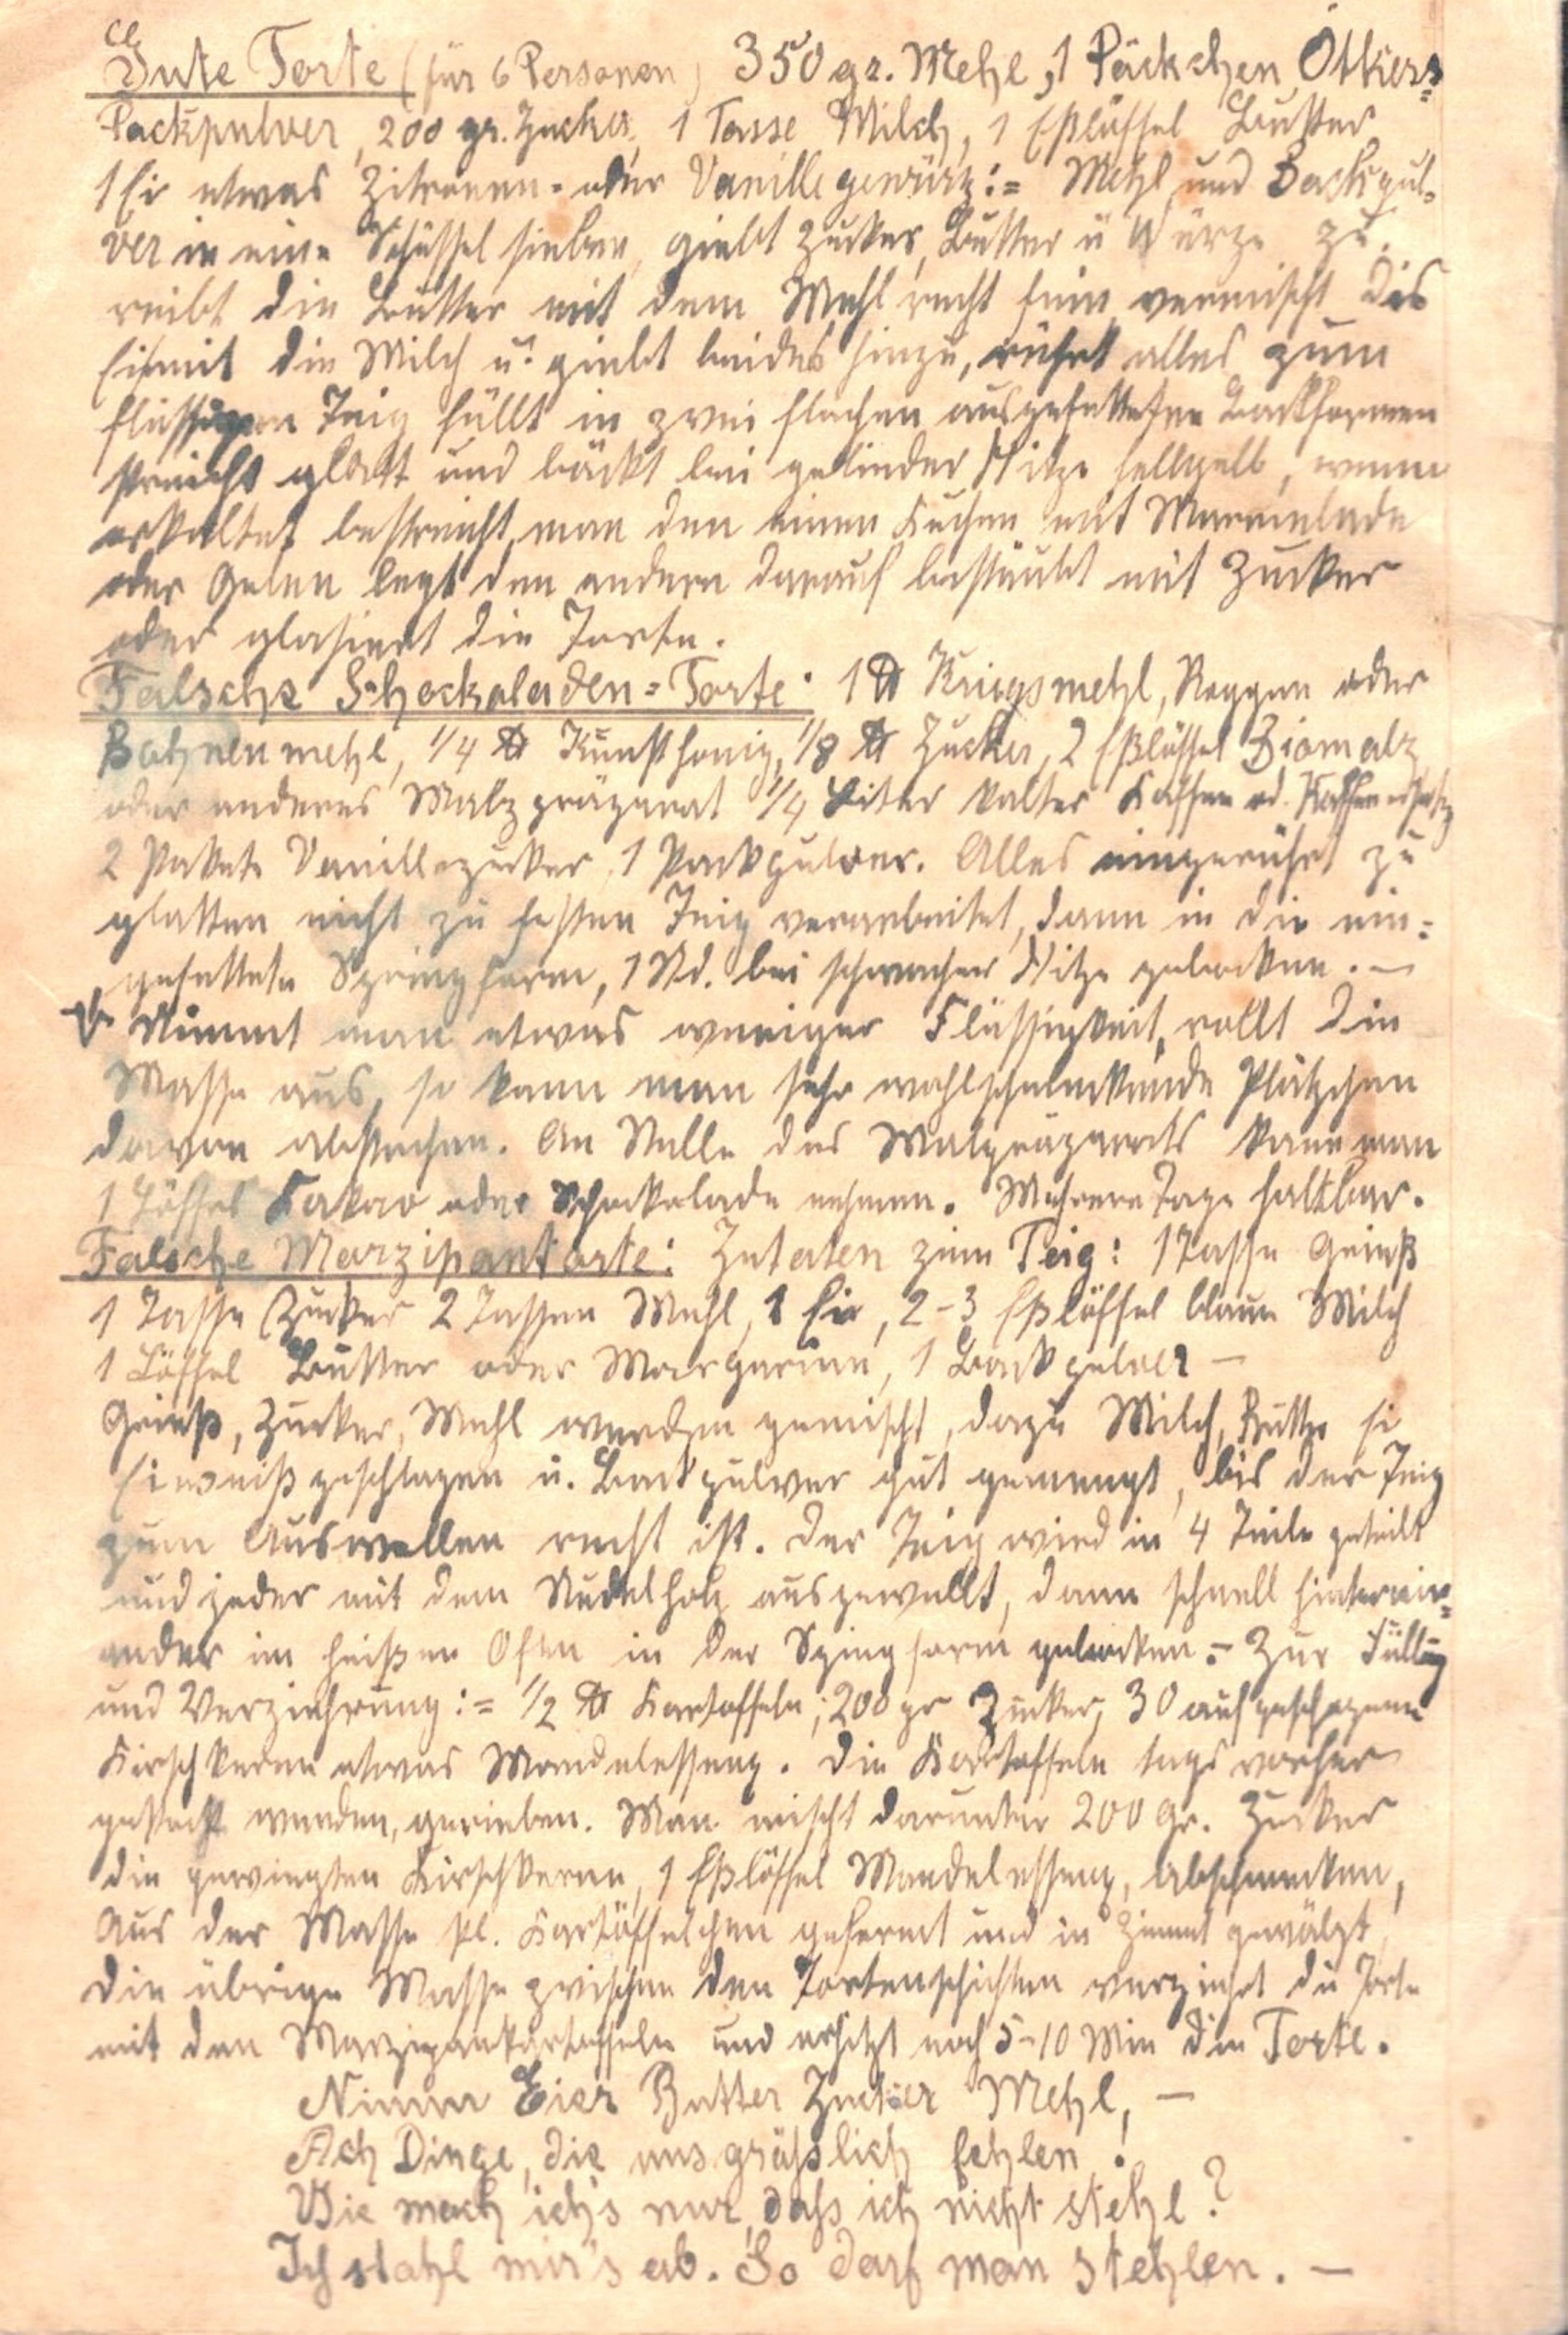 Gute Torte (für 6 Personen) 350 gr. Mehl, 1 Päckchen Ötkers=
Packpulver, 200 gr. Zucker, 1 Tasse Milch, 1 Eßlöffel Butter
1 Ei etwas Zitronen- oder Vanillegewürz:= Mehl und Backpul-
ver in eine Schüssel sieben, giebt Zucker, Butter u Würze zu,
reibt die Butter mit dem Mehl recht fein vermischt das
Ei mit die Milch u. giebt beides hinzu, rührt alles zum
flüssigen Teig füllt in zwei flachen ausgefettete Backformen
streicht glatt und bäckt bei gelinder Hitze hellgelb, wenn
erkaltet bestreicht man den einen Kuchen mit Marmelade
oder Gelee legt den andern darauf bestäubt mit Zucker
oder glasiert die Torte.
Falsche Schockoladen=Torte: 1 ℔ Kriegsmehl, Roggen oder
Bohnenmehl, 1/4 ℔ Kunsthonig, 1/8 ℔ Zucker, 2 Eßlöffel Biomalz
oder anderes Malzpräparat 1/4 Liter kalter Kaffee od. Kaffeeersatz
2 Pakete Vanillezucker, 1 Packpulver. Alles eingerührt zu
glatten nicht zu festen Teig verarbeitet, dann in die ein=
gefettete Springform, 1 Std. bei schwacher Hitze gebacken. —
Nimmt man etwas weniger Flüssigkeit, rollt die
Masse aus, so kann man sehr wohlschmeckende Plätzchen
davon abstechen. An Stelle des Malzpräparats kann man
1 Löffel Kakao oder Schockolade nehmen. Mehrere Tage haltbar.
Falsche Marzipantorte: Zutaten zum Teig: 1 Tasse Grieß
1 Tasse Zucker 2 Tassen Mehl, 1 Ei, 2-3 Eßlöffel blaue Milch
1 Löffel Butter oder Margarine, 1 Backpulver —
Grieß, Zucker, Mehl werden gemischt, dazu Milch, Butter
Eiweiß geschlagen u. Backpulver gut gemengt, bis der Teig
zum Auswellen recht ist. Der Teig wird in 4 Teile geteilt
und jeder mit dem Nudelholz ausgewellt, dann schnell hinterein=
ander im heißen Ofen in der Springform gebacken. — Zur Füllung
und Verziehrung:= 1/2 ℔ Kartoffeln, 200 gr Zucker, 30 aufgeschlagene
Kirschkerne etwas Mandelessenz. Die Kartoffeln tags vorher
gekocht werden, gerieben. Man mischt darunter 200 Gr. Zucker
die gewiegten Kirschkerne, 1 Eßlöffel Mandelessenz, abschmecken,
Aus der Masse kl. Kartöffelchen geformt und in Zimmt gewälzt,
die übrige Masse zwischen den Tortenschichten verziehrt die Torte
mit den Marzipankartoffeln und erhitzt noch 5-10 Min die Torte.
Nimm Eier Butter Zucker Mehl, —
Ach Dinge, die uns gräßlich fehlen!
Wie mach ich's nur, daß ich nicht stehl?
Ich stahl mir's ab. So darf man stehlen. —